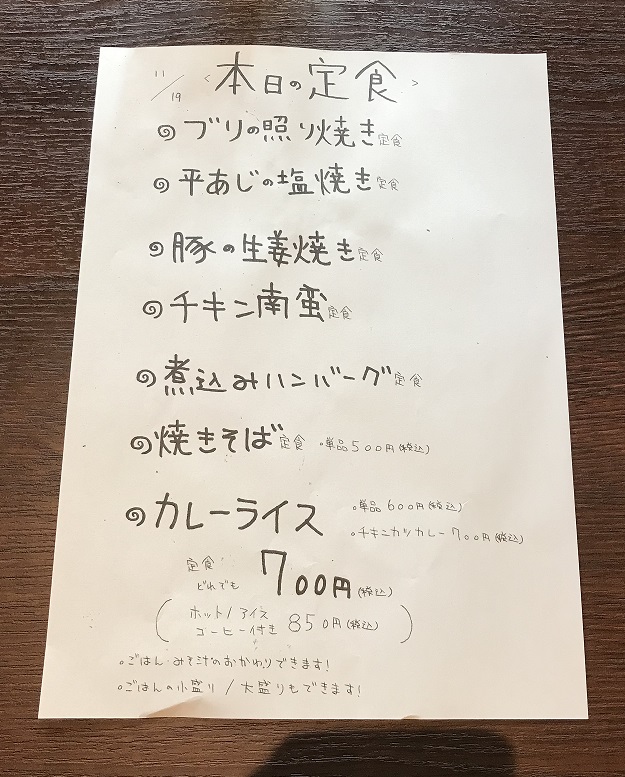 11/19 〈本日の定食〉
ブリの照り焼き定食
平あじの塩焼き定食
豚の生姜焼き定食
チキン南蛮定食
煮込みハンバーグ定食
焼きそば定食 ・単品500円(税込)
カレーライス ・単品600円(税込)
・チキンカツカレー700円(税込)
定食どれでも 700円(税込)
(ホット/アイスコーヒー付き 850円(税込))
・ごはん みそ汁のおかわりできます!
・ごはんの小盛り/大盛りもできます!